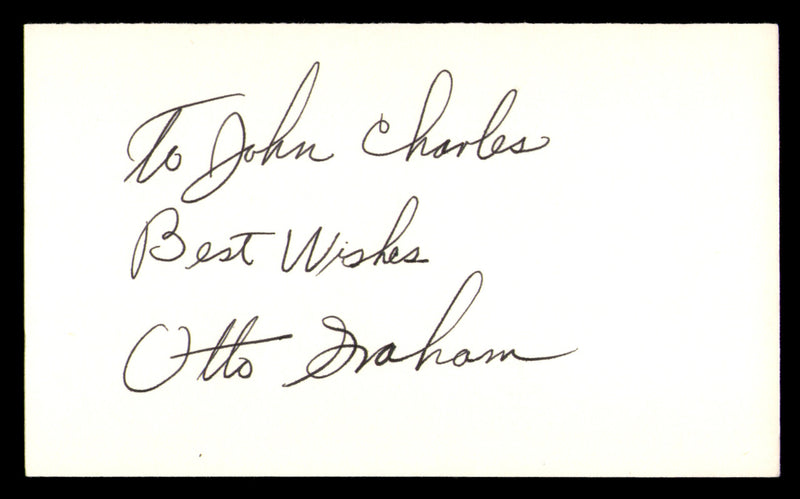 To John Charles
Best Wishes
Otto Graham